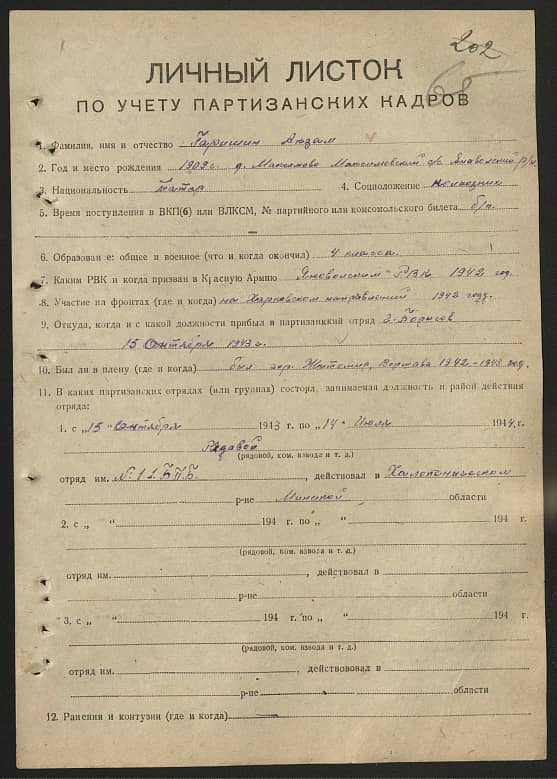 202
65
ЛИЧНЫЙ ЛИСТОК
ПО УЧЕТУ ПАРТИЗАНСКИХ КАДРОВ
1. Фамилия, имя и отчество Гаришин Акзам
2. Год и место рождения 1909 г. д. Максимово Максимовский с/с Янаволский р/н.
3. Национальность татар 4. Соцположение колхозник
5. Время поступления в ВКП(б) или ВЛКСМ, № партийного или комсомольского билета б/п.
6. Образован е: общее и военное (что и когда окончил) 4 класса.
7. Каким РВК и когда призван в Красную Армию Яновольским РВК 1942 год.
8. Участие на фронтах (где и когда) на Харковском направлений 1942 году.
9. Откуда, когда и с какой должности прибыл в партизанкий отряд г. Борисов
15 Сентября 1943 г.
10. Был ли в плену (где и когда) был гор. Житомир, Вортава 1942-1943 год.
11. В каких партизанских отрядах (или группах) состоял, занимаемая должность и район действия
отряда:
1. с „15 Сентября 1943 г. по „14" Июля 1944 г.
Редавой
(рядовой, ком. взвода и т. д.)
отряд им. № 1 2. Б.П.Б. , действовал в Халопоническом
р-не Минской области
2. с „ " 194 г. по „ " 194 г.
(рядовой, ком. взвода и т. д.)
отряд им. , действовал в
р-не области
3. с „ " 194 г. по „ " 194 г.
(рядовой, ком. взвода и т. д.)
отряд им. , действововал в
р-не области
12. Ранения и контузии (где и когда) —